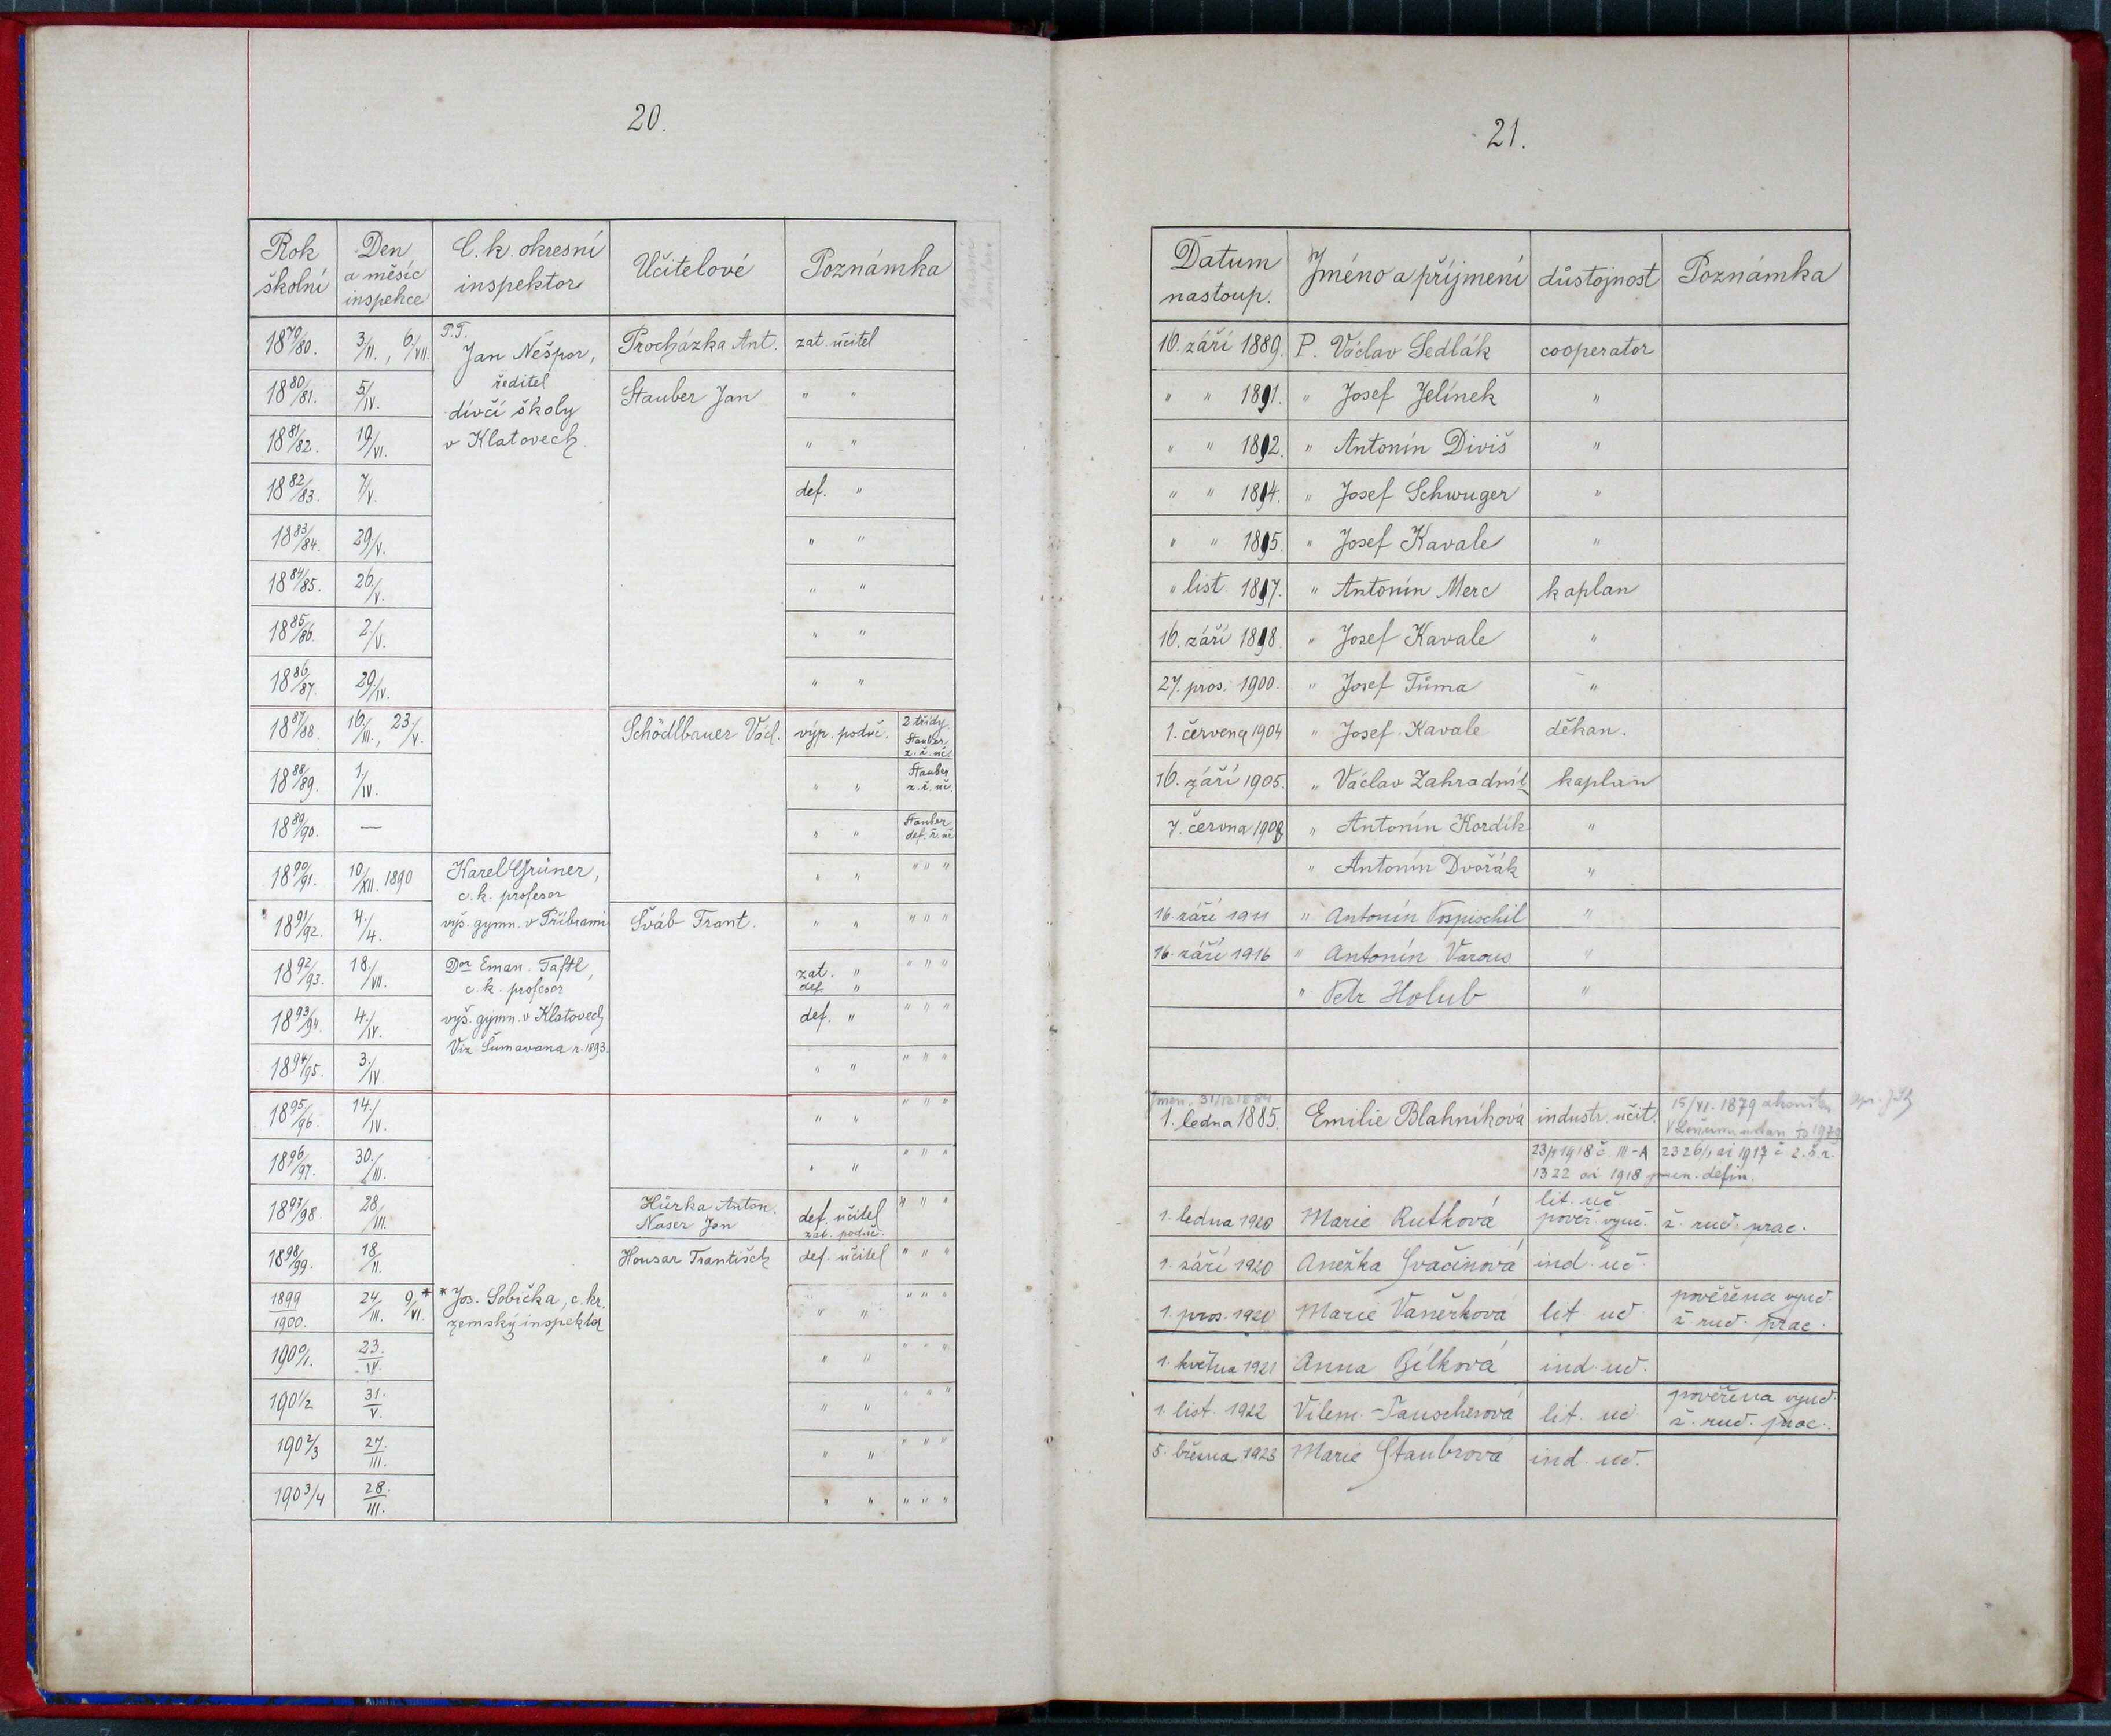 20.
Rok školní | Den a měsíc inspekce | C. k. okresní inspektor | Učitelové | Poznámka
18 79/80. | 3/II., 6/VII. | P.T. Jan Nešpor, | Procházka Ant. | zat. učitel
18 80/81. | 5/IV. | ředitel dívčí školy | Stauber Jan | " "
18 81/82. | 19/VI. | v Klatovech. | | " "
18 82/83. | 7/V. | | | def. "
18 83/84. | 29/V. | | | " "
18 84/85. | 26/V. | | | " "
18 85/86. | 2/V. | | | " "
18 86/87. | 29/IV. | | | " "
18 87/88. | 16/III., 23/V. | | Schödlbauer Václ. | výp. poduč. | 2 třídy Stauber z. ř. uč.
18 88/89. | 1./IV. | | | " " | Stauber z. ř. uč.
18 89/90. | — | | | " " | Stauber def. ř. uč.
18 90/91. | 10/XII. 1890 | Karel Grüner, c. k. profesor | | " " | " " "
18 91/92. | 4./4. | vyš. gymn. v Příbrami | Šváb Frant. | " " | " " "
18 92/93. | 18./VII. | Dor Eman. Taftl, c. k. profesor | | zat. " def. " | " " "
18 93/94. | 4./IV. | vyš. gymn. v Klatovech | | def. " | " " "
Viz Šumavana r. 1893.
18 94/95. | 3./IV. | | | " " | " " "
18 95/96. | 14./IV. | | | " " | " " "
18 96/97. | 30./III. | | | " " | " " "
18 97/98. | 28./III. | | Hůrka Anton. Naser Jan | def. učitel zat. poduč. | " " "
18 98/99. | 18/II. | | Housar František | def. učitel | " " "
1899/1900. | 24/III. 9/VI.* | * Jos. Sobička, c. kr. zemský inspektor | | " " | " " "
190 0/1. | 23./IV. | | | " " | " " "
190 1/2 | 31./V. | | | " " | " " "
190 2/3 | 27./III. | | | " " | " " "
190 3/4 | 28./III. | | | " " | " " "
21.
Datum nastoup. | Jméno a příjmení | důstojnost | Poznámka
16. září 1889. | P. Václav Sedlák | cooperator
" " 1891. | " Josef Jelínek | "
" " 1892. | " Antonín Diviš | "
" " 1894. | " Josef Schwuger | "
" " 1895. | " Josef Kavale | "
" list 1897. | " Antonín Merc | kaplan
16. září 1898. | " Josef Kavale | "
27. pros. 1900. | " Josef Tůma | "
1. června 1904 | " Josef Kavale | děkan.
16. září 1905. | " Václav Zahradník | kaplan
7. června 1908 | " Antonín Kordík | "
" Antonín Dvořák | "
16. září 1911 | " Antonín Vospischil | "
16. září 1916 | " Antonín Varous | "
" Petr Holub | "
Jmen. 31/12 1884
1. ledna 1885. | Emilie Blahníková | industr. učit. | 15/VI. 1879
1322 ai 1918 jmen. defin.
1. ledna 1920 | Marie Rutková | lit. uč. pověř. vyuč. | ž. ruč. prac.
1. září 1920 | Anežka Svačinová | ind. uč.
1. pros. 1920 | Marie Vaněrková | lit. uč. | pověřena vyuč. ž. ruč. prac.
1. května 1921 | Anna Bílková | ind. uč.
1. list. 1922 | Vilem. Tauscherová | lit. uč. | pověřena vyuč. ž. ruč. prac.
5. března 1923 | Marie Staubrová | ind. uč.